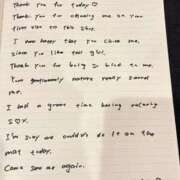 Thank you for today♡
Thank you for choosing me on your
first visit to this shop.
I am happy that you chose me,
since you like tall girl.
Thank you for being so kind to me.
Your gentlemanly nature really saved
me.
I had a great time having relaxing
S♡X.
I'm sorry we couldn't do it on the
mat today.
Come see me again.